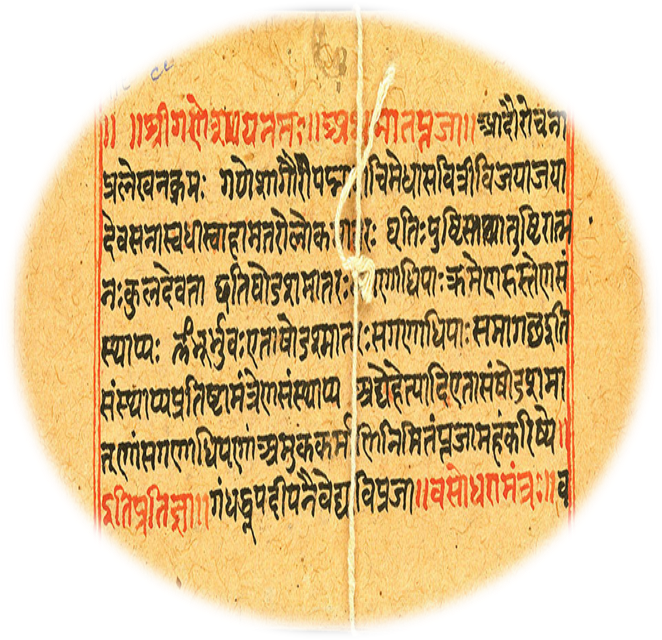 ॥ ॥श्रीगणेशायनमः॥अथमातपूजा॥आदौरोचना
प्रलेखनक्रमः गणेशागौरीपद्माशचिमेधासवित्रीविजयाजया
देवसेनास्वधास्वाहामातरोलोकमातरः धृतिःपुष्टिस्तथातुष्टिरात्म
नःकुलदेवता इतिषोडशमातरः गणाधिपाःक्रमेणहस्तेणसं
स्थाप्यः ॐभूर्भुवःएताषोडशमातरःसगणाधिपाःसमागछइति
संस्थाप्यप्रतिष्टामंत्रेणसंस्थाप्य अद्येहेत्यादिएतासंषोडशमा
तृणांसगणाधिपाणांअमुककर्मणिनिमित्तंपूजामहंकरिष्ये॥
इतिप्रतिज्ञा॥गंधधूपदीपनैवेद्यविपूजा॥वसोधरामंत्रः॥व